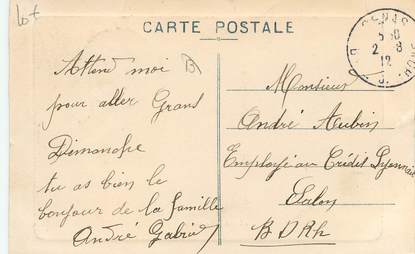 Lot
CARTE POSTALE
B
Attend moi
pour aller Grans
Dimanche
tu as bien le
bonjour de la famille
André Gabriel
Monsieur
André Aubin
Employé au Crédit Lyonnais
Salon
B D Rh
2 - 8
12